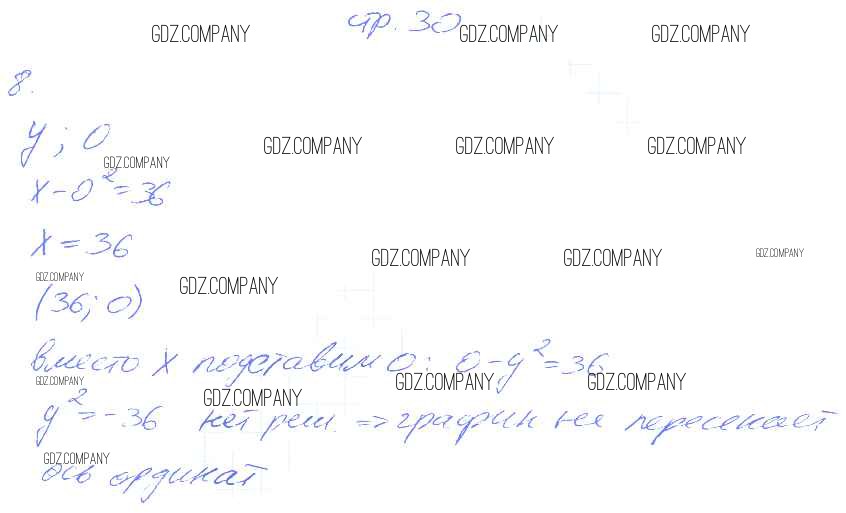 стр. 30
GDZ.COMPANY GDZ.COMPANY GDZ.COMPANY
8.
y ; 0
GDZ.COMPANY GDZ.COMPANY GDZ.COMPANY
GDZ.COMPANY
x - 0² = 36
x = 36
GDZ.COMPANY GDZ.COMPANY GDZ.COMPANY
GDZ.COMPANY GDZ.COMPANY
(36; 0)
вместо x подставим 0: 0 - y² = 36
GDZ.COMPANY GDZ.COMPANY GDZ.COMPANY
GDZ.COMPANY
y² = -36 нет реш. => график не пересекает
GDZ.COMPANY
ось ординат